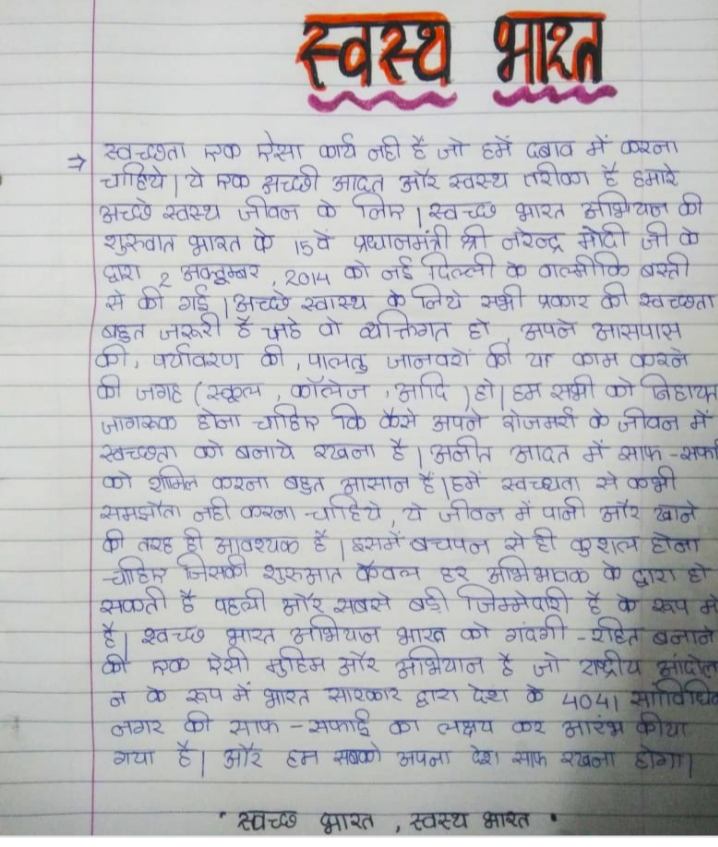 स्वस्थ भारत
⇒ स्वच्छता एक ऐसा कार्य नही है जो हमें दबाव में करना
चाहिये। ये एक अच्छी आदत और स्वस्थ तरीका है हमारे
अच्छे स्वस्थ जीवन के लिए। स्वच्छ भारत अभियान की
शुरुवात भारत के 15वें प्रधानमंत्री श्री नरेन्द्र मोदी जी के
द्वारा 2 अक्टूम्बर, 2014 को नई दिल्ली के वाल्मीकि बस्ती
से की गई। अच्छे स्वास्थ के लिये सभी प्रकार की स्वच्छता
बहुत जरूरी है चाहे वो व्यक्तिगत हो, अपने आसपास
की, पर्यावरण की, पालतु जानवरों की या काम करने
की जगह (स्कूल, कॉलेज, आदि) हो। हम सभी को निहायत
जागरुक होना चाहिए कि कैसे अपने रोजमर्रा के जीवन में
स्वच्छता को बनाये रखना है। अपनी आदत में साफ-सफा
को शामिल करना बहुत आसान है। हमें स्वच्छता से कभी
समझौता नही करना चाहिये, ये जीवन में पानी और खाने
की तरह ही आवश्यक है। इसमें बचपन से ही कुशल होना
चाहिए जिसकी शुरुआत केवल हर अभिभावक के द्वारा हो
सकती है पहली और सबसे बड़ी जिम्मेदारी है के रूप मे
है। स्वच्छ भारत अभियान भारत को गंदगी-रहित बनाने
की एक ऐसी मुहिम और अभियान है जो राष्ट्रीय आंदोल
न के रूप में भारत सारकार द्वारा देश के 4041 सांविधि
नगर की साफ-सफाई का लक्षय कर आरंभ कीया
गया है। और हम सबको अपना देश साफ रखना होगा।
" स्वच्छ भारत, स्वस्थ भारत "